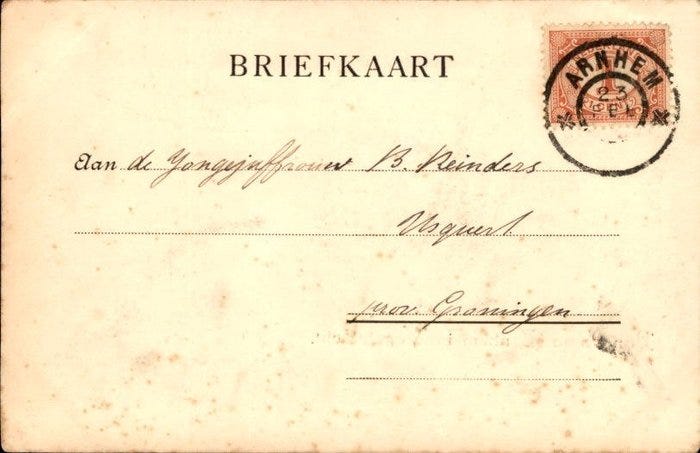 BRIEFKAART
ARNHEM
23
Aan de Jongejuffrouw B. Reinders
Usquert
prov. Groningen